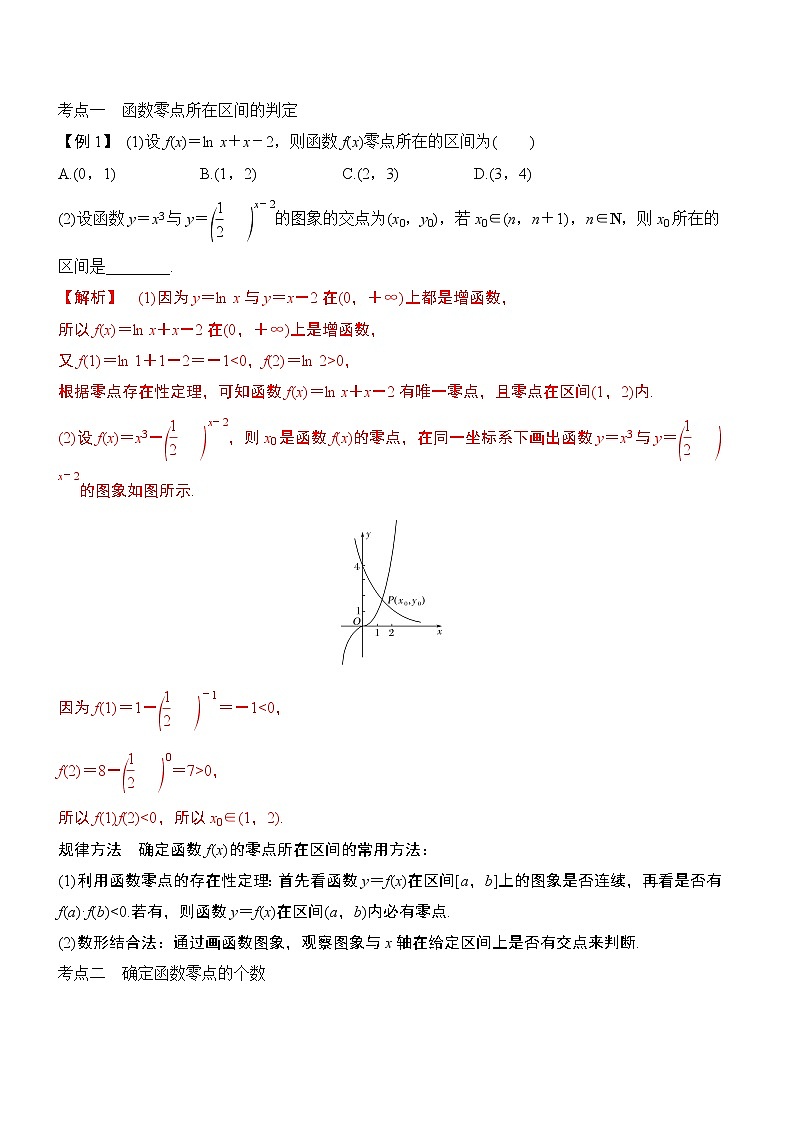 考点一　函数零点所在区间的判定
【例1】 (1)设f(x)＝ln x＋x－2，则函数f(x)零点所在的区间为(　　)
A.(0，1)　　B.(1，2)　　C.(2，3)　　D.(3，4)
(2)设函数y＝x³与y＝(1/2)^(x－2)的图象的交点为(x₀，y₀)，若x₀∈(n，n＋1)，n∈N，则x₀所在的
区间是________.
【解析】　(1)因为y＝ln x与y＝x－2在(0，＋∞)上都是增函数，
所以f(x)＝ln x＋x－2在(0，＋∞)上是增函数，
又f(1)＝ln 1＋1－2＝－1<0，f(2)＝ln 2>0，
根据零点存在性定理，可知函数f(x)＝ln x＋x－2有唯一零点，且零点在区间(1，2)内.
(2)设f(x)＝x³－(1/2)^(x－2)，则x₀是函数f(x)的零点，在同一坐标系下画出函数y＝x³与y＝(1/2)
x－2的图象如图所示.
y
4
P(x₀,y₀)
1
O 1 2 x
因为f(1)＝1－(1/2)^(－1)＝－1<0，
f(2)＝8－(1/2)^0＝7>0，
所以f(1)f(2)<0，所以x₀∈(1，2).
规律方法　确定函数f(x)的零点所在区间的常用方法：
(1)利用函数零点的存在性定理：首先看函数y＝f(x)在区间[a，b]上的图象是否连续，再看是否有
f(a)·f(b)<0.若有，则函数y＝f(x)在区间(a，b)内必有零点.
(2)数形结合法：通过画函数图象，观察图象与x轴在给定区间上是否有交点来判断.
考点二　确定函数零点的个数